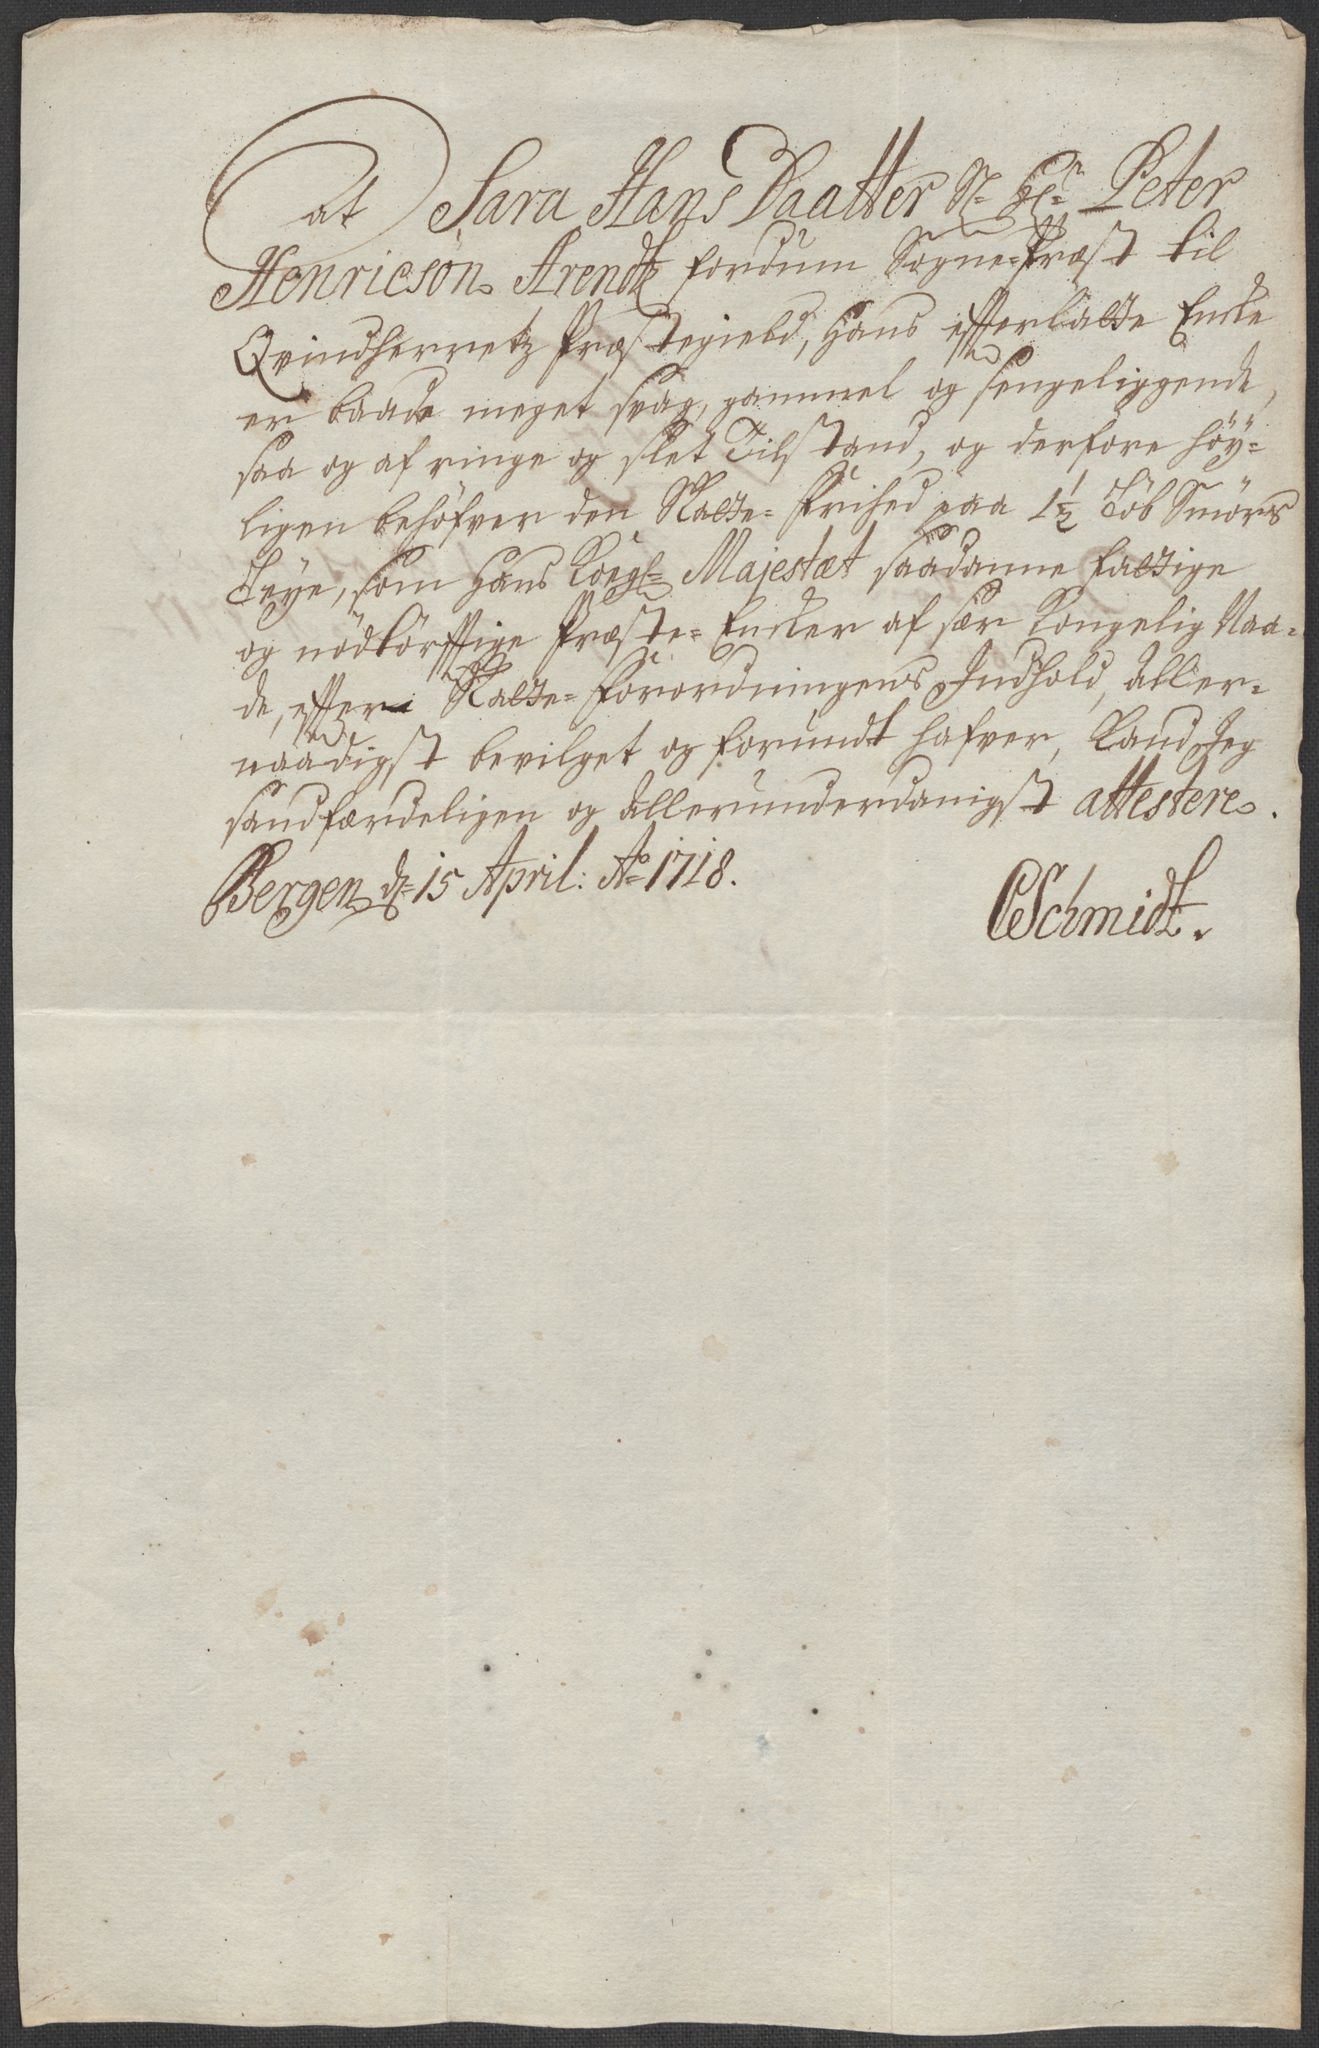 at Sara Hans Daatter Sl: Hr: Peter
Henricsön Arendtz fordum Sogne-Præst til
Qvindherretz Præstegield, Hans effterladte Encke
er baade meget svag, gammel og sengeliggende,
saa og af ringe og slet Tilstand, og derfore höy-
ligen behöfver den Skatte-Frihed paa 1½ Löb Smörs
Leye, som Hans Kongl: Majestæt saadanne fattige
og nödtörfftige Præste-Encker af sær Kongelig Naa-
de, effter Skatte-Forordningens Indhold, aller-
naadigst bevilget og forundt hafver, Kand Jeg
sandfærdeligen og allerunderdanigst attestere.
Bergen d: 15 April: Ao 1718.
CSchmidt.